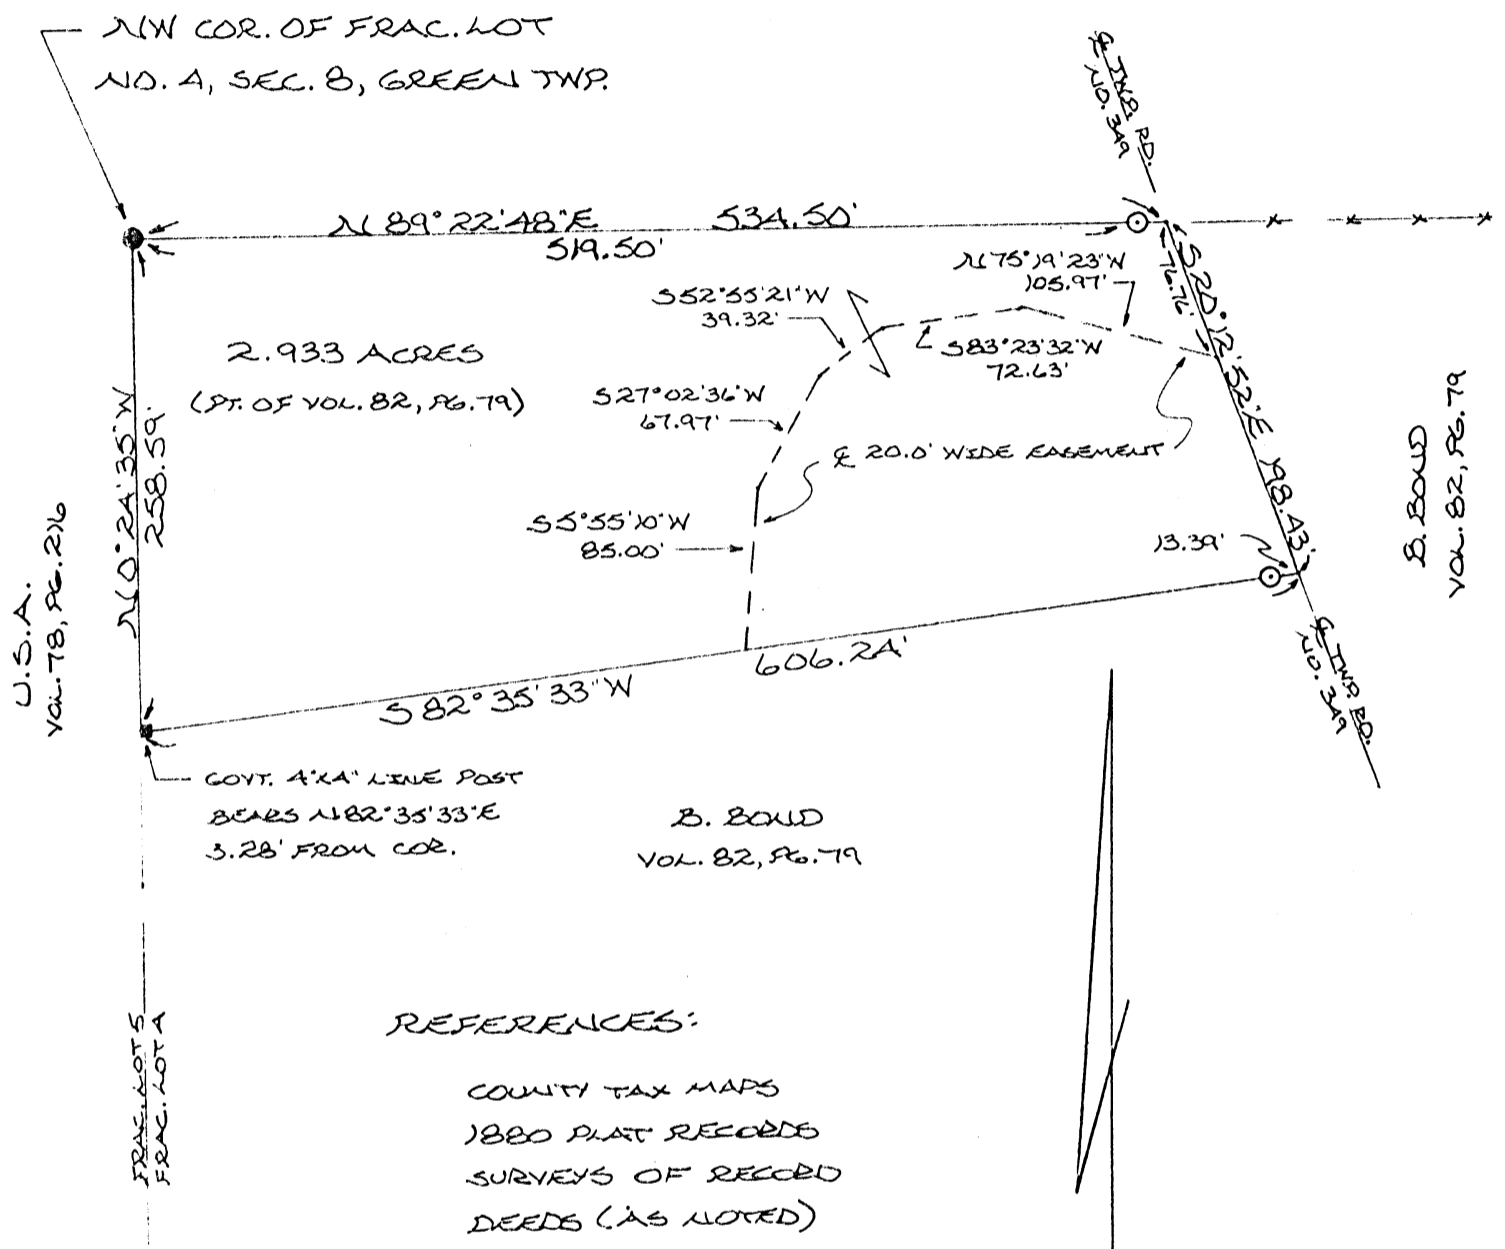 NW COR. OF FRAC. LOT
NO. 4, SEC. 8, GREEN TWP.
℄ TWP. RD.
NO. 349
N 89° 22' 48" E 534.50'
519.50'
N 75° 19' 23" W
105.97'
76.76'
S 20° 12' 52" E 198.43'
S 52° 55' 21" W
39.32'
S 83° 23' 32" W
72.63'
2.933 ACRES
(PT. OF VOL. 82, PG. 79)
S 27° 02' 36" W
67.97'
℄ 20.0' WIDE EASEMENT
N 0° 24' 35" W
258.59'
S 5° 55' 10" W
85.00'
13.39'
B. BOND
VOL. 82, PG. 79
U.S.A.
VOL. 78, PG. 216
S 82° 35' 33" W
606.24'
℄ TWP. RD.
NO. 349
GOVT. 4"X4" LINE POST
BEARS N 82° 35' 33" E
3.28' FROM COR.
B. BOND
VOL. 82, PG. 79
FRAC. LOT 5
FRAC. LOT 4
REFERENCES:
COUNTY TAX MAPS
1880 PLAT RECORDS
SURVEYS OF RECORD
DEEDS (AS NOTED)